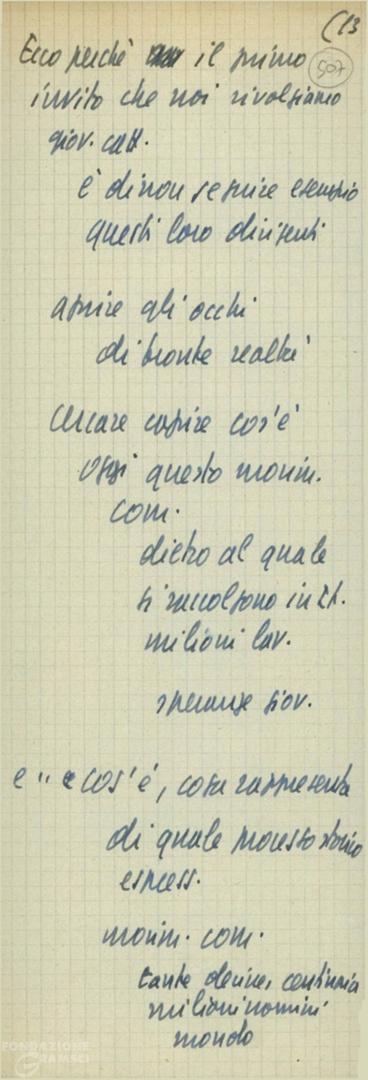 (13
Ecco perché il primo
507
invito che noi rivolgiamo
giov. catt.
è di non seguire esempio
questi loro dirigenti
aprire gli occhi
di fronte realtà
cercare capire cos'è
oggi questo movim.
com.
dietro al quale
si raccolgono in It.
milioni lav.
speranze giov.
e " cos'è, cosa rappresenta
di quale processo storico
espress.
movim. com.
tante decine, centinaia
milioni uomini
mondo
FONDAZIONE
GRAMSCI